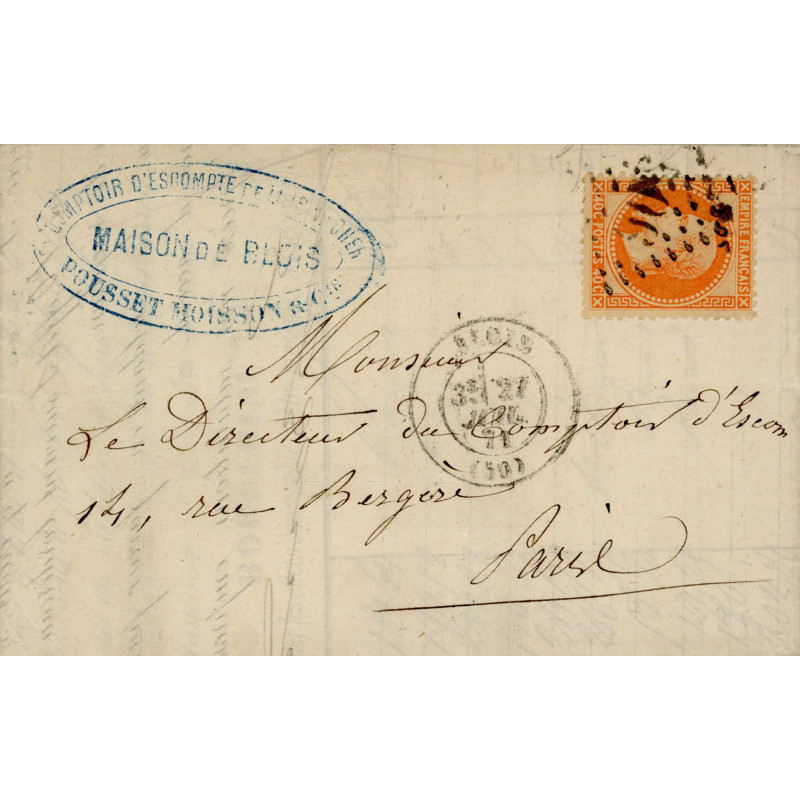 COMPTOIR D'ESCOMPTE DE
MAISON DE BLOIS
POUSSET MOISSON & Cie
EMPIRE FRANÇAIS
BLOIS
3E 27
71
(40)
Monsieur
Le Directeur du Comptoir d'Escom
14, rue Bergere
Paris